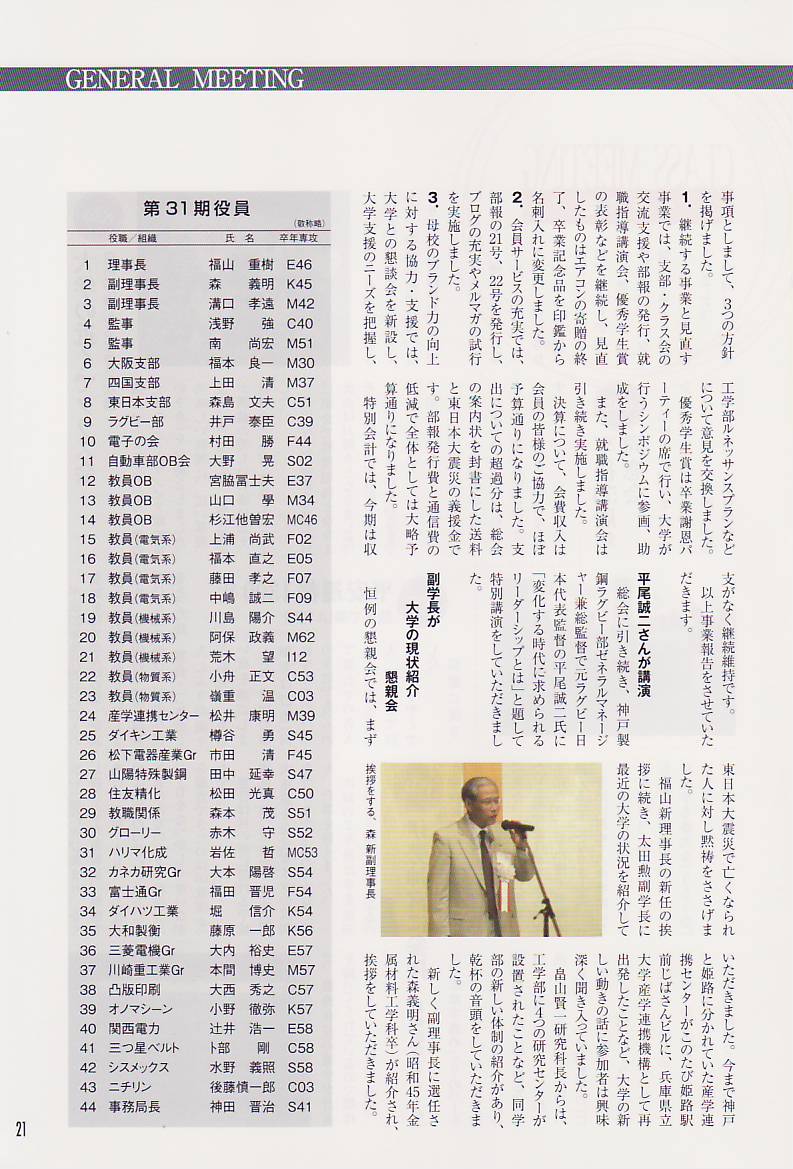 GENERAL MEETING
事項としまして、3つの方針
を掲げました。
1. 継続する事業と見直す
事業では、支部・クラス会の
交流支援や部報の発行、就
職指導講演会、優秀学生賞
の表彰などを継続し、見直
したものはエアコンの寄贈の終
了、卒業記念品を印鑑から
名刺入れに変更しました。
2. 会員サービスの充実では、
部報の21号、22号を発行し、
ブログの充実やメルマガの試行
を実施しました。
3. 母校のブランド力の向上
に対する協力・支援では、
大学との懇談会を新設し、
大学支援のニーズを把握し、
工学部ルネッサンスプランなど
について意見を交換しました。
優秀学生賞は卒業謝恩パ
ーティーの席で行い、大学が
行うシンポジウムに参画、助
成をしました。
また、就職指導講演会は
引き続き実施しました。
決算について、会費収入は
会員の皆様のご協力で、ほぼ
予算通りになりました。支
出についての超過分は、総会
の案内状を封書にした送料
と東日本大震災の義援金で
す。部報発行費と通信費の
低減で全体としては大略予
算通りになりました。
特別会計では、今期は収
支がなく継続維持です。
以上事業報告をさせていた
だきます。
平尾誠二さんが講演
総会に引き続き、神戸製
鋼ラグビー部ゼネラルマネージ
ャー兼総監督で元ラグビー日
本代表監督の平尾誠二氏に
「変化する時代に求められる
リーダーシップとは」と題して
特別講演をしていただきまし
た。
副学長が
大学の現状紹介
懇親会
恒例の懇親会では、まず
東日本大震災で亡くなられ
た人に対し黙祷をささげま
した。
福山新理事長の新任の挨
拶に続き、太田勲副学長に
最近の大学の状況を紹介して
挨拶をする、森 新副理事長
いただきました。今まで神戸
と姫路に分かれていた産学連
携センターがこのたび姫路駅
前じばさんビルに、兵庫県立
大学産学連携機構として再
出発したことなど、大学の新
しい動きの話に参加者は興味
深く聞き入っていました。
畠山賢一研究科長からは、
工学部に4つの研究センターが
設置されたことなど、同学
部の新しい体制の紹介があり、
乾杯の音頭をしていただきま
した。
新しく副理事長に選任さ
れた森義明さん(昭和45年金
属材料工学科卒)が紹介され、
挨拶をしていただきました。
第31期役員
(敬称略)
役職／組織 氏 名 卒年専攻
1 理事長 福山 重樹 E46
2 副理事長 森 義明 K45
3 副理事長 溝口 孝遠 M42
4 監事 浅野 強 C40
5 監事 南 尚宏 M51
6 大阪支部 福本 良一 M30
7 四国支部 上田 清 M37
8 東日本支部 森島 文夫 C51
9 ラグビー部 井戸 泰臣 C39
10 電子の会 村田 勝 F44
11 自動車部OB会 大野 晃 S02
12 教員OB 宮脇冨士夫 E37
13 教員OB 山口 學 M34
14 教員OB 杉江他曽宏 MC46
15 教員(電気系) 上浦 尚武 F02
16 教員(電気系) 福本 直之 E05
17 教員(電気系) 藤田 孝之 F07
18 教員(電気系) 中嶋 誠二 F09
19 教員(機械系) 川島 陽介 S44
20 教員(機械系) 阿保 政義 M62
21 教員(機械系) 荒木 望 I12
22 教員(物質系) 小舟 正文 C53
23 教員(物質系) 嶺重 温 C03
24 産学連携センター 松井 康明 M39
25 ダイキン工業 樽谷 勇 S45
26 松下電器産業Gr 市田 清 F45
27 山陽特殊製鋼 田中 延幸 S47
28 住友精化 松田 光真 C50
29 教職関係 森本 茂 S51
30 グローリー 赤木 守 S52
31 ハリマ化成 岩佐 哲 MC53
32 カネカ研究Gr 大本 陽啓 S54
33 富士通Gr 福田 晋児 F54
34 ダイハツ工業 堀 信介 K54
35 大和製衡 藤原 一郎 K56
36 三菱電機Gr 大内 裕史 E57
37 川崎重工業Gr 本間 博史 M57
38 凸版印刷 大西 秀之 C57
39 オノマシーン 小野 徹弥 K57
40 関西電力 辻井 浩一 E58
41 三つ星ベルト 卜部 剛 C58
42 シスメックス 水野 義照 S58
43 ニチリン 後藤慎一郎 C03
44 事務局長 神田 晋治 S41
21